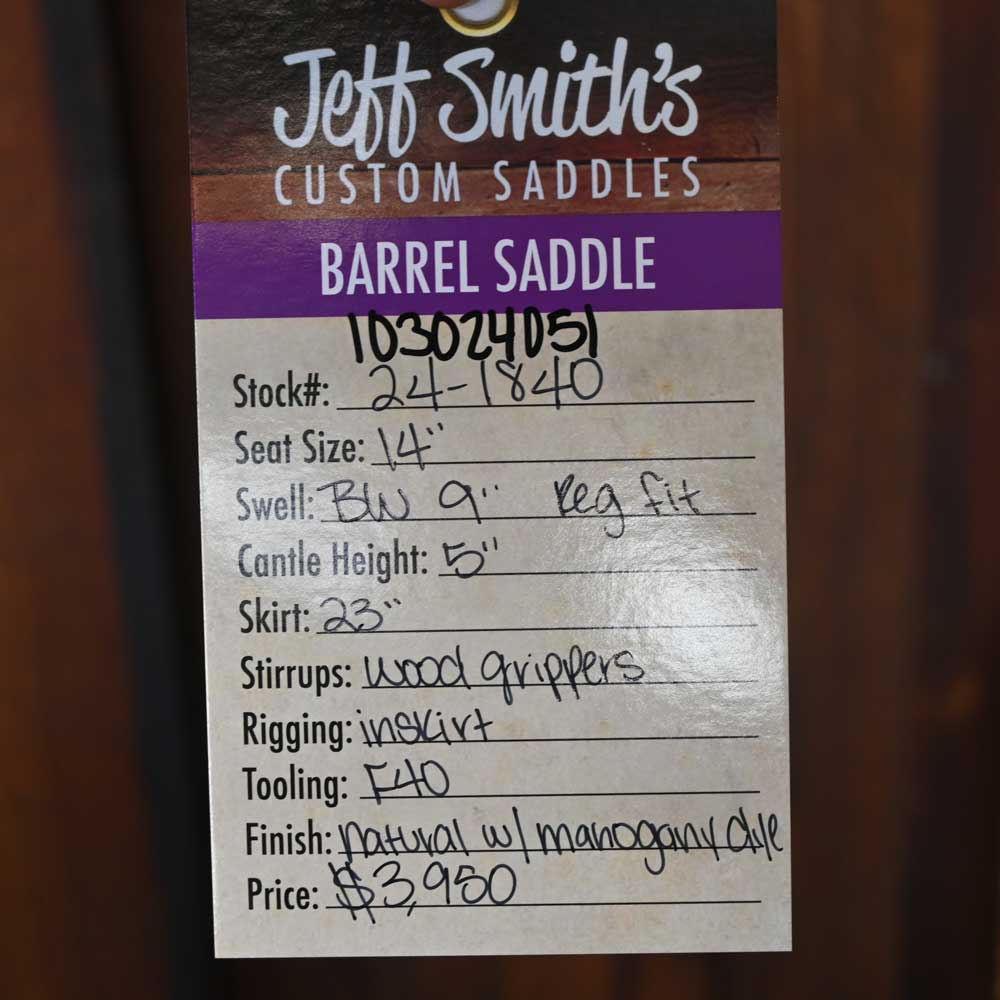 Jeff Smith's
CUSTOM SADDLES
BARREL SADDLE
103024051
Stock#: 24-1840
Seat Size: 14"
Swell: BW 9" Reg fit
Cantle Height: 5"
Skirt: 23"
Stirrups: wood grippers
Rigging: inskirt
Tooling: F40
Finish: natural w/ mahogany dye
Price: $3,950